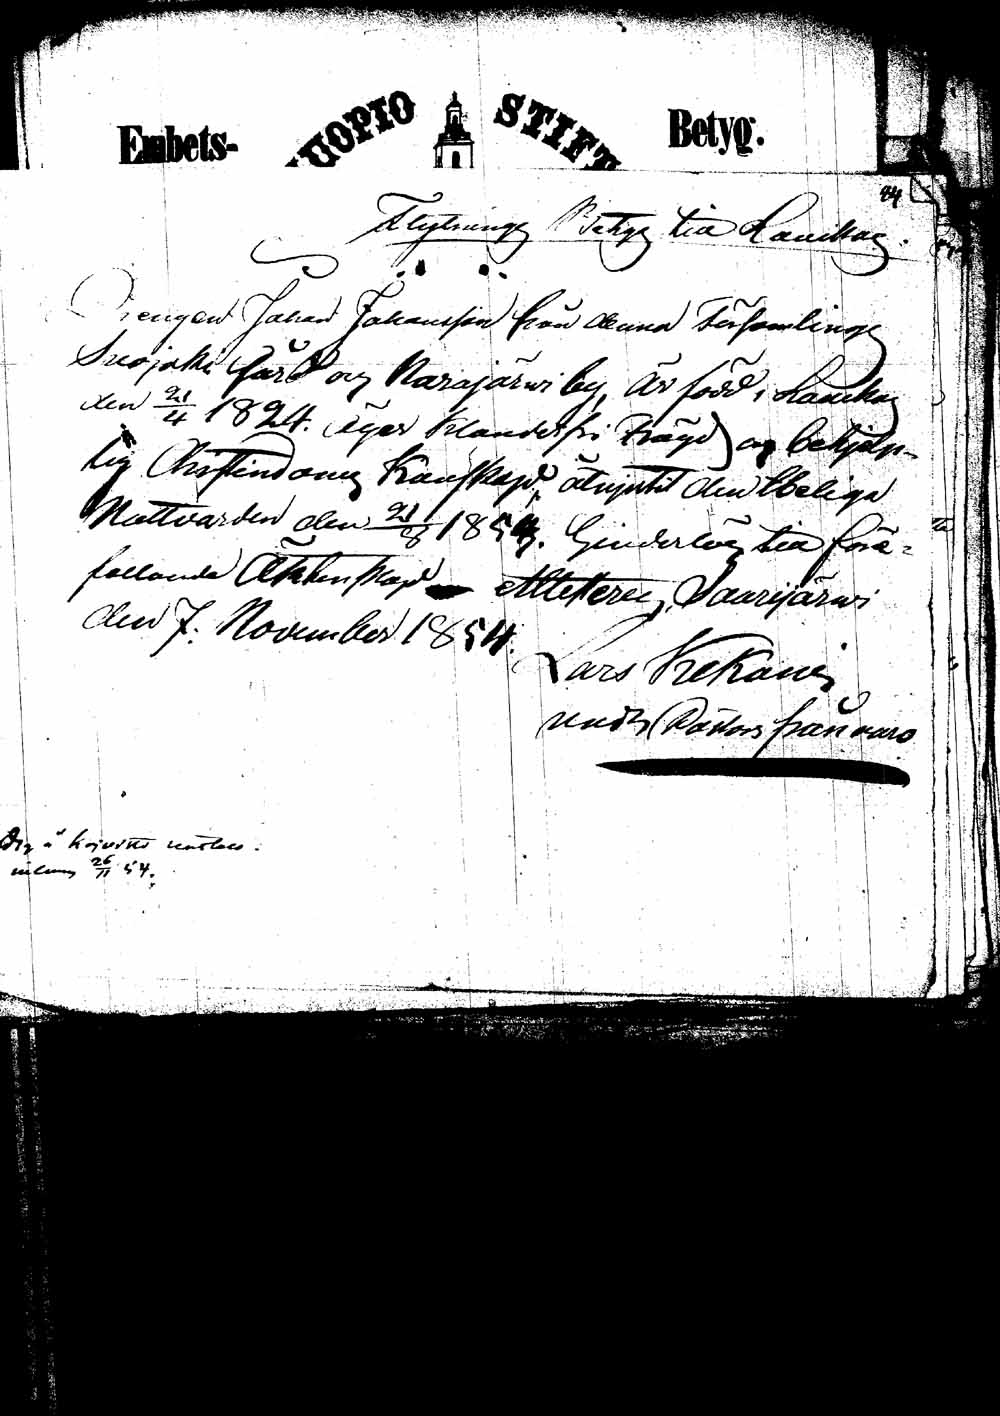 Embets- KUOPIO STIFT Betyg.
84
Flyttnings Betyg till Laukas.
Drengen Johan Johansson från denna Församlings
Suojoki Gård og Karajärwi by, är född i Laukas
den 21/4 1824. äger Klanderfri Fräyd og behjelp-
lig Christendoms Kunskap, åtnjutit den Heliga
Nattvarden den 21/8 1854. Hinderlös till före-
fallande Äktenskap Attesterer, Saarijärwi
den 7. November 1854.
Lars Kekoni
under Pastors frånvaro
uti
26/11 54.